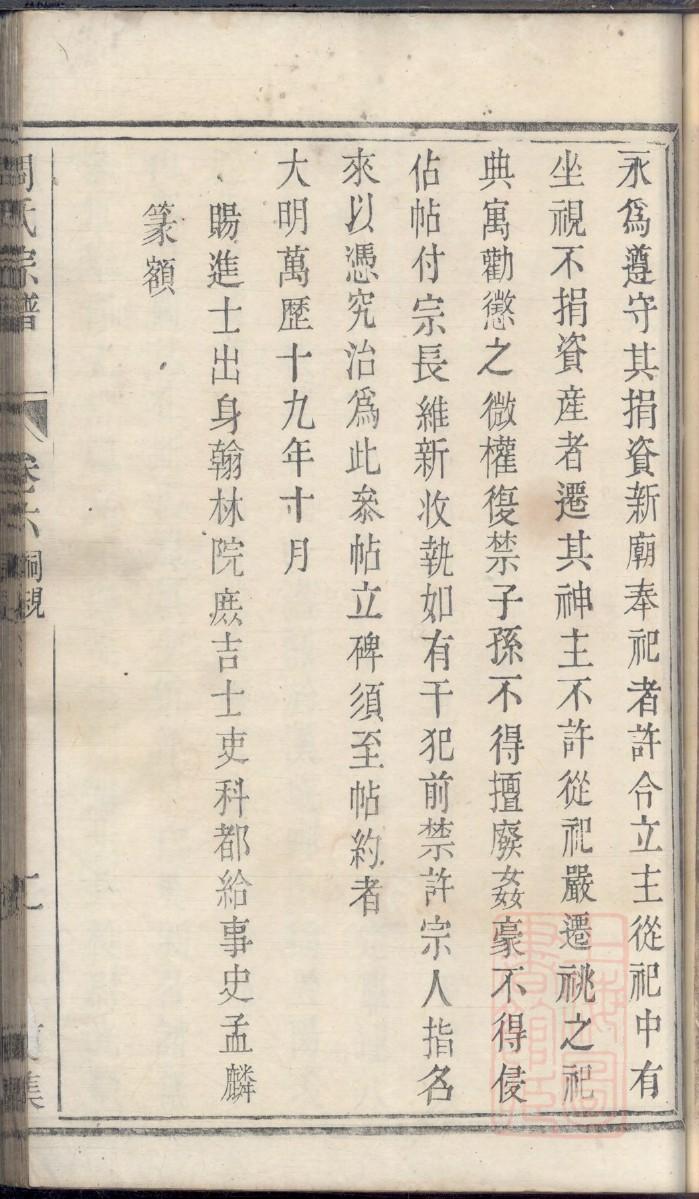 永爲遵守其捐資新廟奉祀者許令立主從祀中有
坐視不捐資産者遷其神主不許從祀嚴遷祧之祀
典寓勸懲之微權復禁子孫不得擅廢姦豪不得侵
佔帖付宗長維新收執如有干犯前禁許宗人指名
來以憑究治爲此叅帖立碑須至帖約者
大明萬歷十九年十月
賜進士出身翰林院庶吉士吏科都給事史孟麟
篆額
周氏宗譜
卷六
祠規